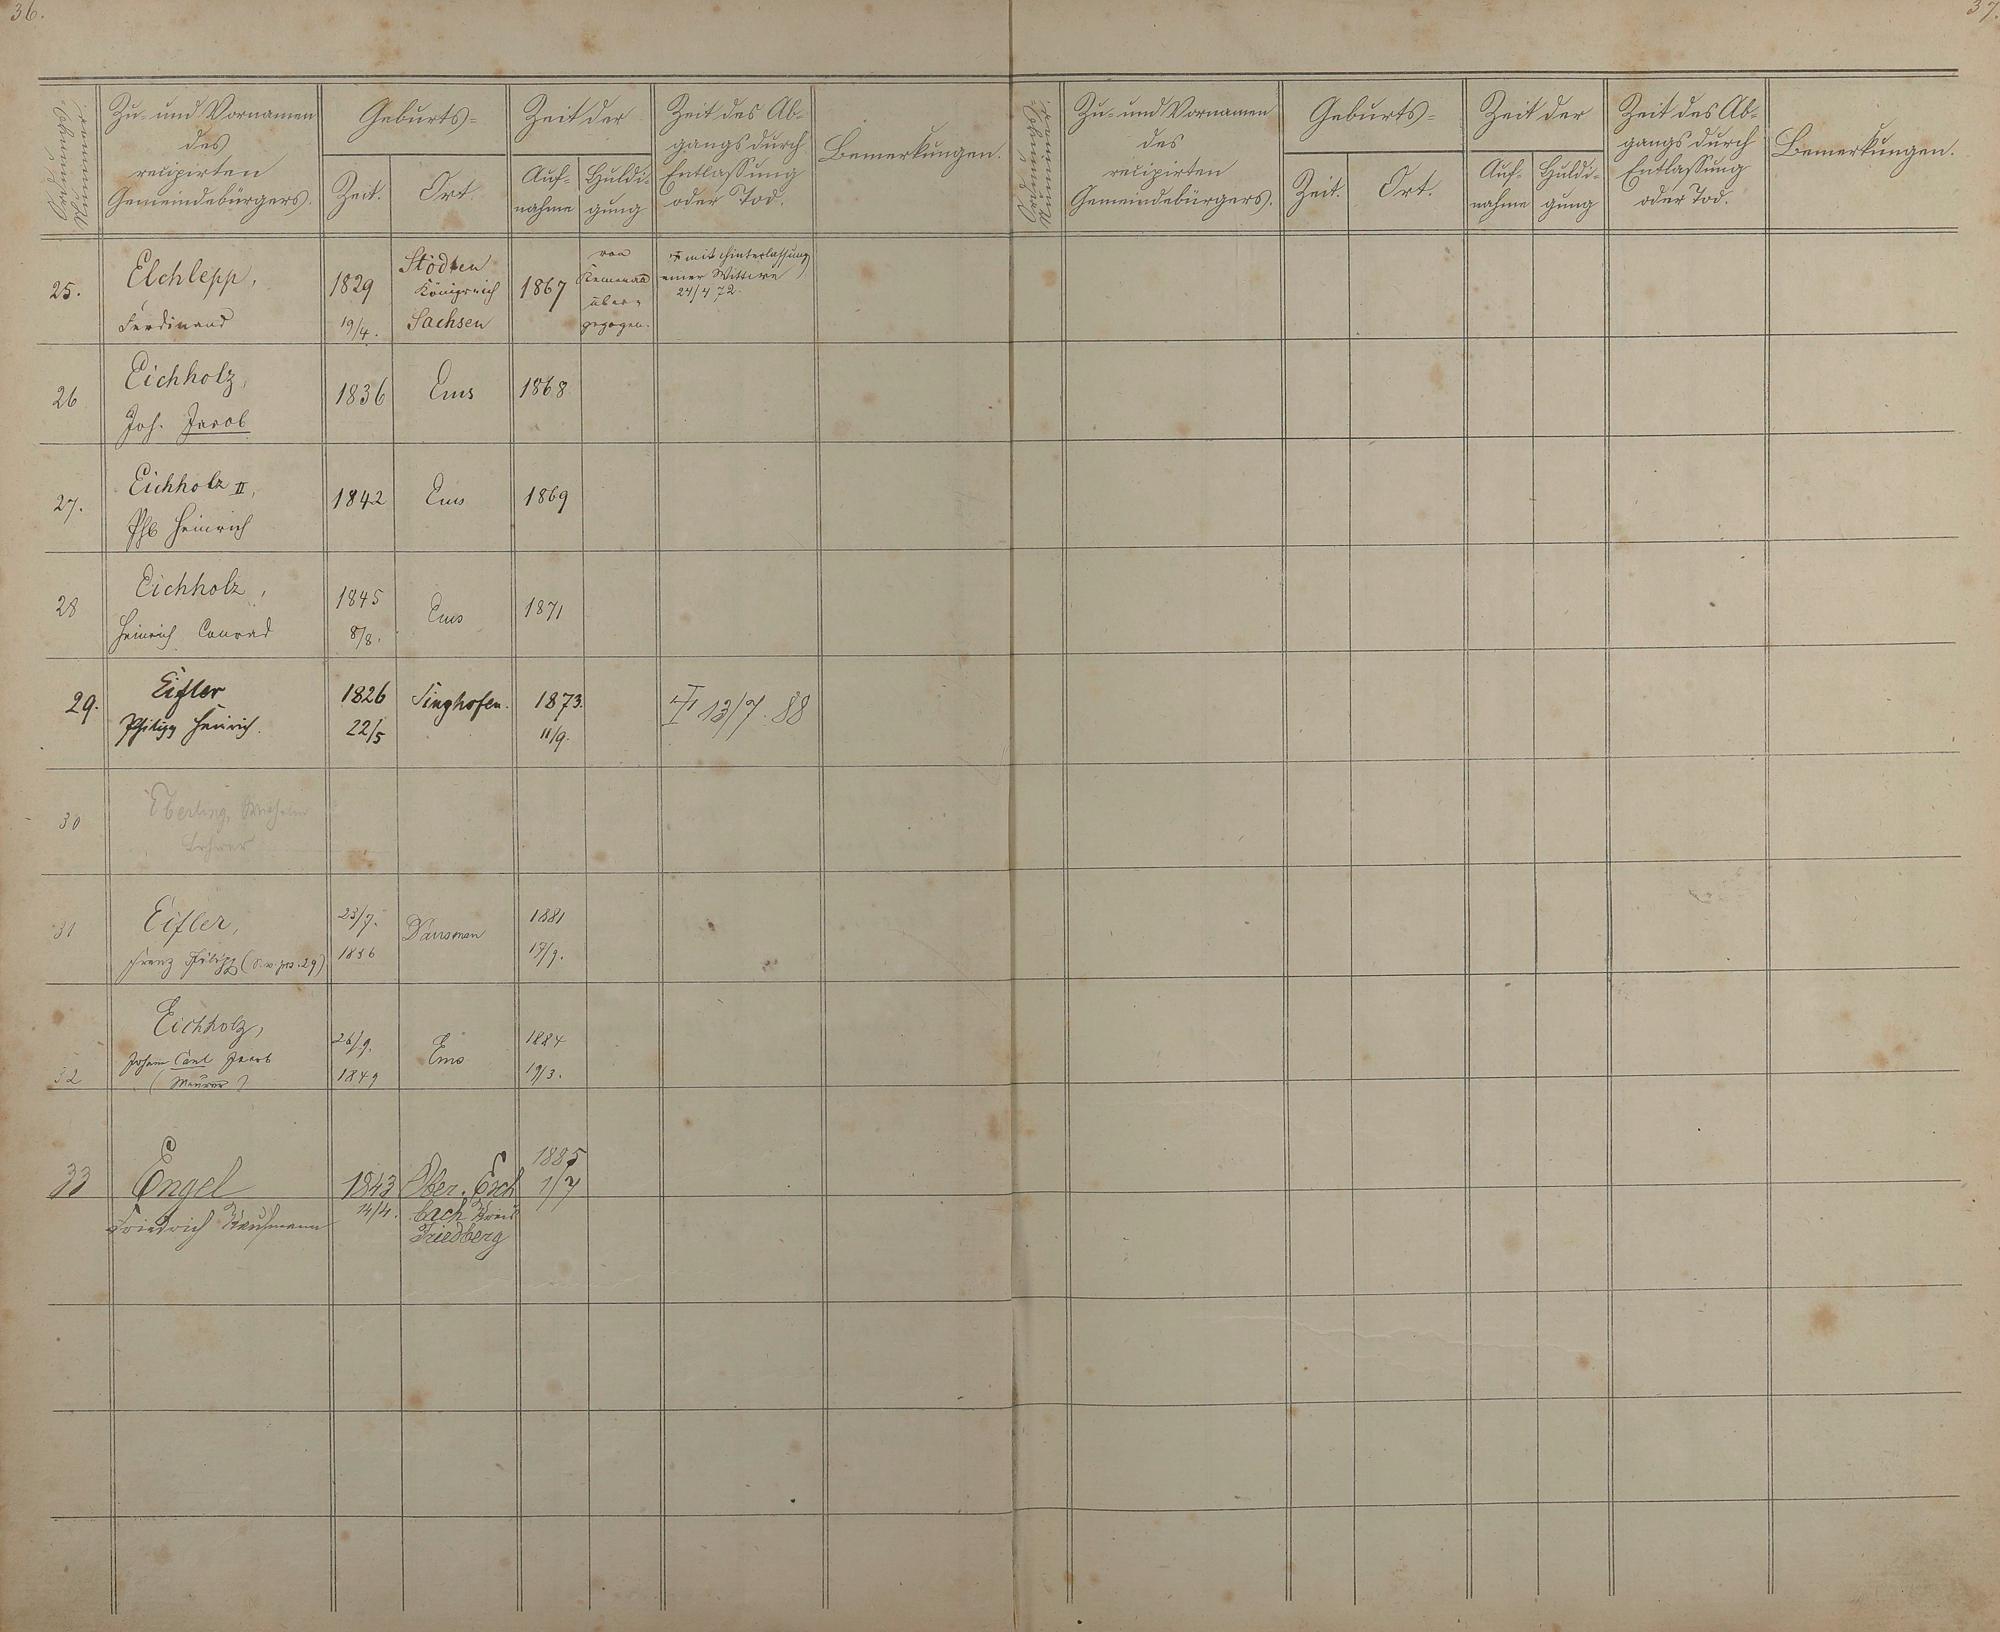 36.
37.
Ordnungs-
Nummer.
Zu- und Vornamen
des
recipirten
Gemeindebürgers.
Geburts-
Zeit.
Ort.
Zeit der
Auf-
nahme
Huldi-
gung
Zeit des Ab-
gangs durch
Entlassung
oder Tod.
Bemerkungen.
Ordnungs-
Nummer.
Zu- und Vornamen
des
recipirten
Gemeindebürgers.
Geburts-
Zeit.
Ort.
Zeit der
Auf-
nahme
Huldi-
gung
Zeit des Ab-
gangs durch
Entlassung
oder Tod.
Bemerkungen.
25.
Elchlepp,
Ferdinand
1829
19/4.
Stödten
Königreich
Sachsen
1867
von
Kemenau
über-
gezogen.
† mit Hinterlassung
einer Wittwe
24/4 72.
26
Eichholz,
Joh. Jacob
1836
Ems
1868
27.
Eichholz II,
Phb Heinrich
1842
Ems
1869
28
Eichholz,
Heinrich Conrad
1845
8/8.
Ems
1871
29.
Eifler
Philipp Heinrich.
1826
22/5
Singhofen.
1873.
11/9.
† 13/7. 88
30
Eberling, Wilhelm
Lehrer
31
Eifler,
Franz Philipp (S. v. pos. 29)
23/7.
1856
Dausenau
1881
17/9.
32
Eichholz,
Johann Carl Jacob
(Maurer)
26/9.
1849
Ems
1884
19/3.
33
Engel
Friedrich Kaufmann
1843
14/4.
Ober-Esch
bach Kreis
Friedberg
1885
1/7